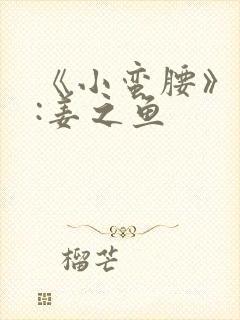 《小蛮腰》
:姜之鱼
榴芒